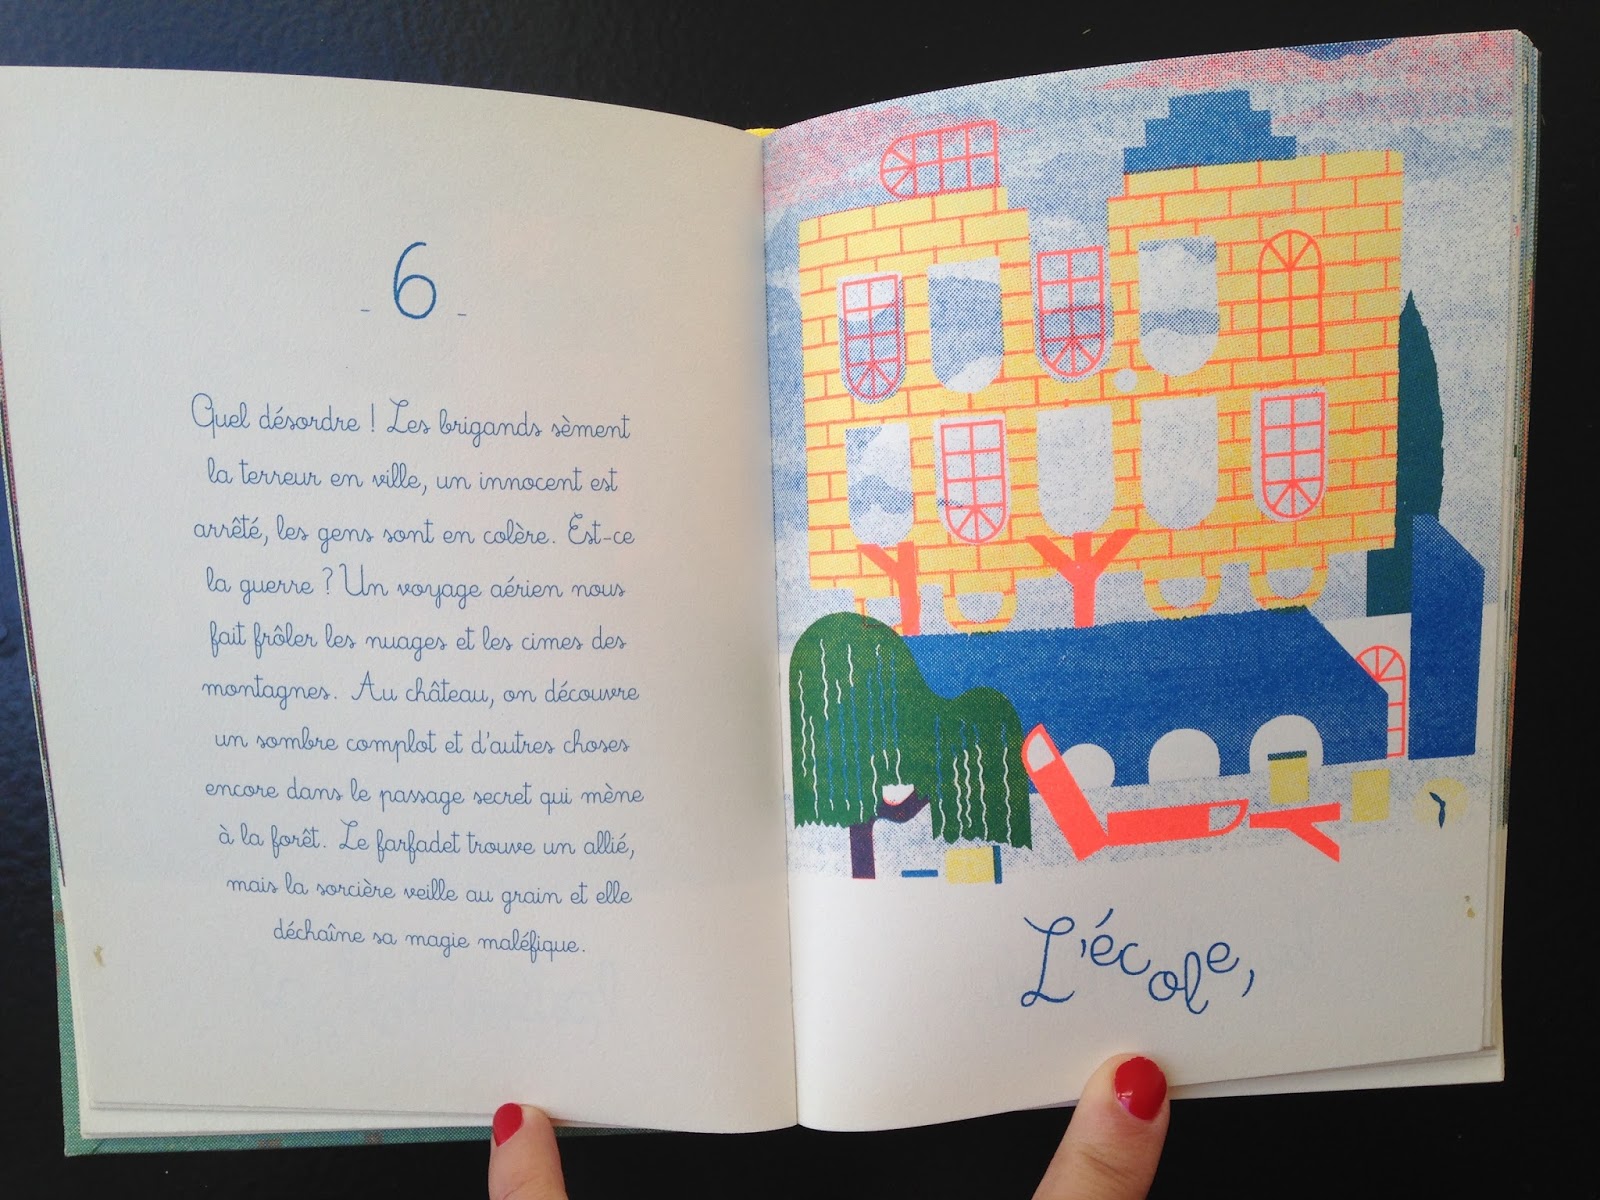 - 6 -
Quel désordre ! Les brigands sèment
la terreur en ville, un innocent est
arrêté, les gens sont en colère. Est-ce
la guerre ? Un voyage aérien nous
fait frôler les nuages et les cimes des
montagnes. Au château, on découvre
un sombre complot et d'autres choses
encore dans le passage secret qui mène
à la forêt. Le farfadet trouve un allié,
mais la sorcière veille au grain et elle
déchaîne sa magie maléfique.
L'école,